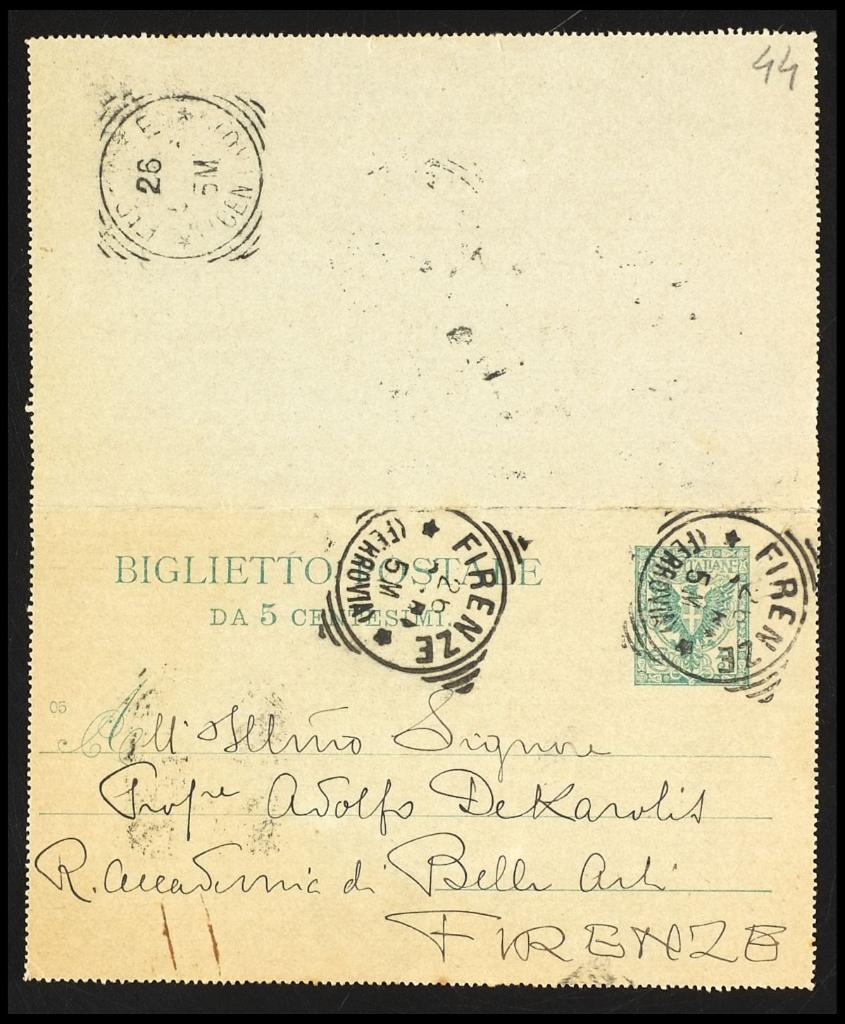 44
26
5M
BIGLIETTO POSTALE
DA 5 CENTESIMI
FIRENZE
(FERROVIA)
26
5M
FIRENZE
(FERROVIA)
26
5M
05
All' Illmo Signore
Profre Adolfo DeKarolis
R. Accademia di Belle Arti
FIRENZE